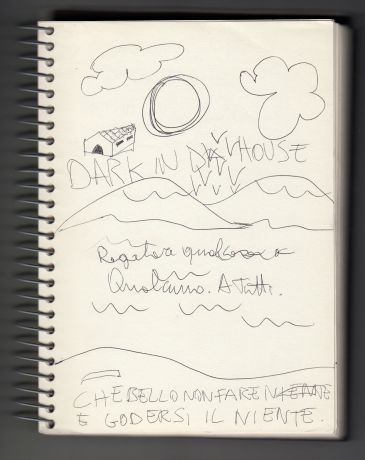 DARK IN DA HOUSE
Regala a qualcosa a
Qualcuno. A Tutti.
CHE BELLO NON FARE NIENTE
E GODERSI IL NIENTE.